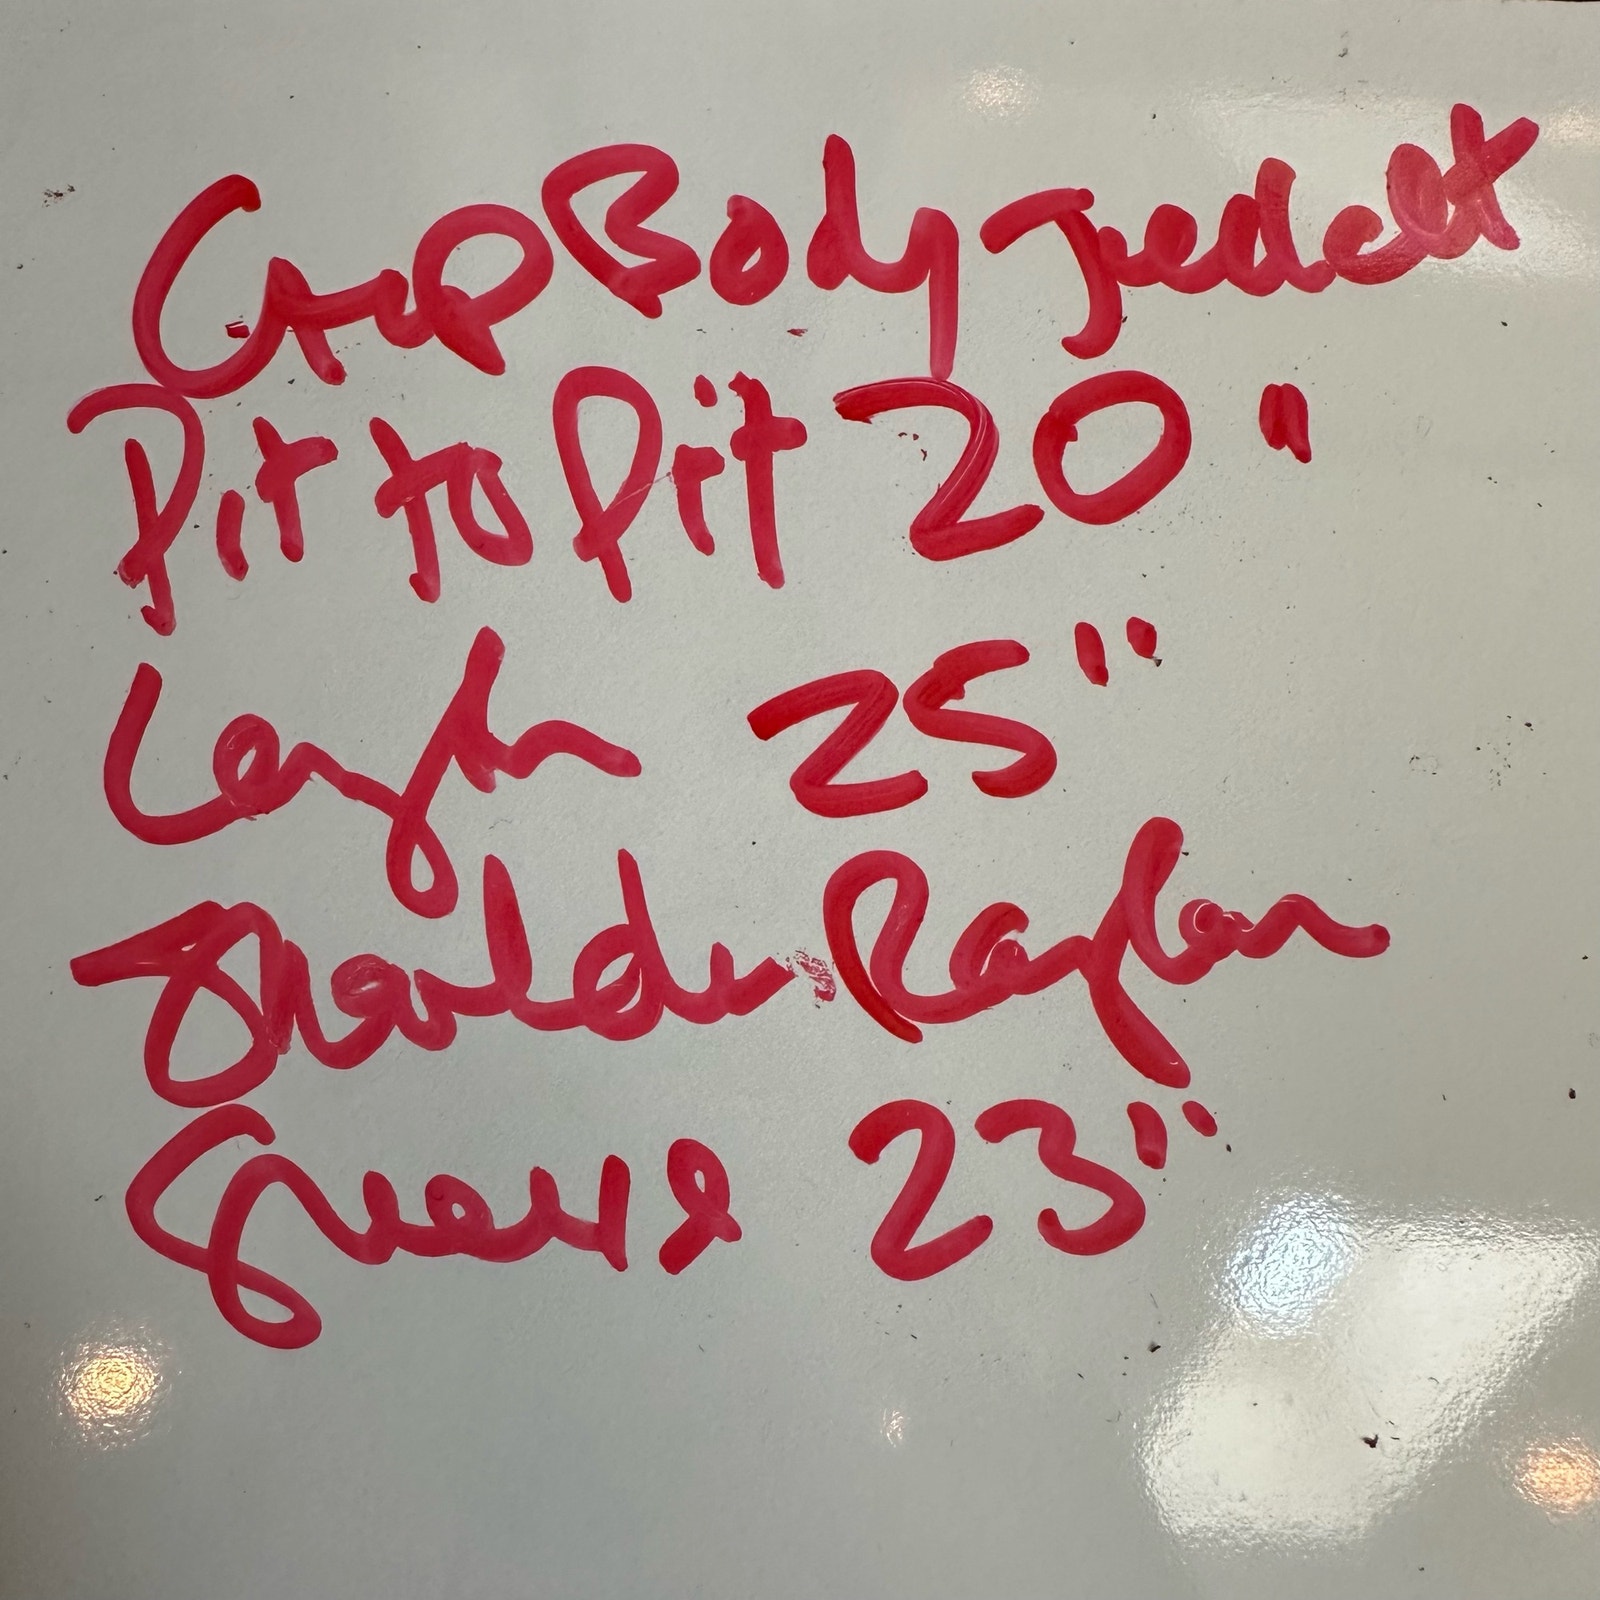 Body
Pit to Pit 20"
Length 25"
Shoulder Raglan
Sleeve 23"